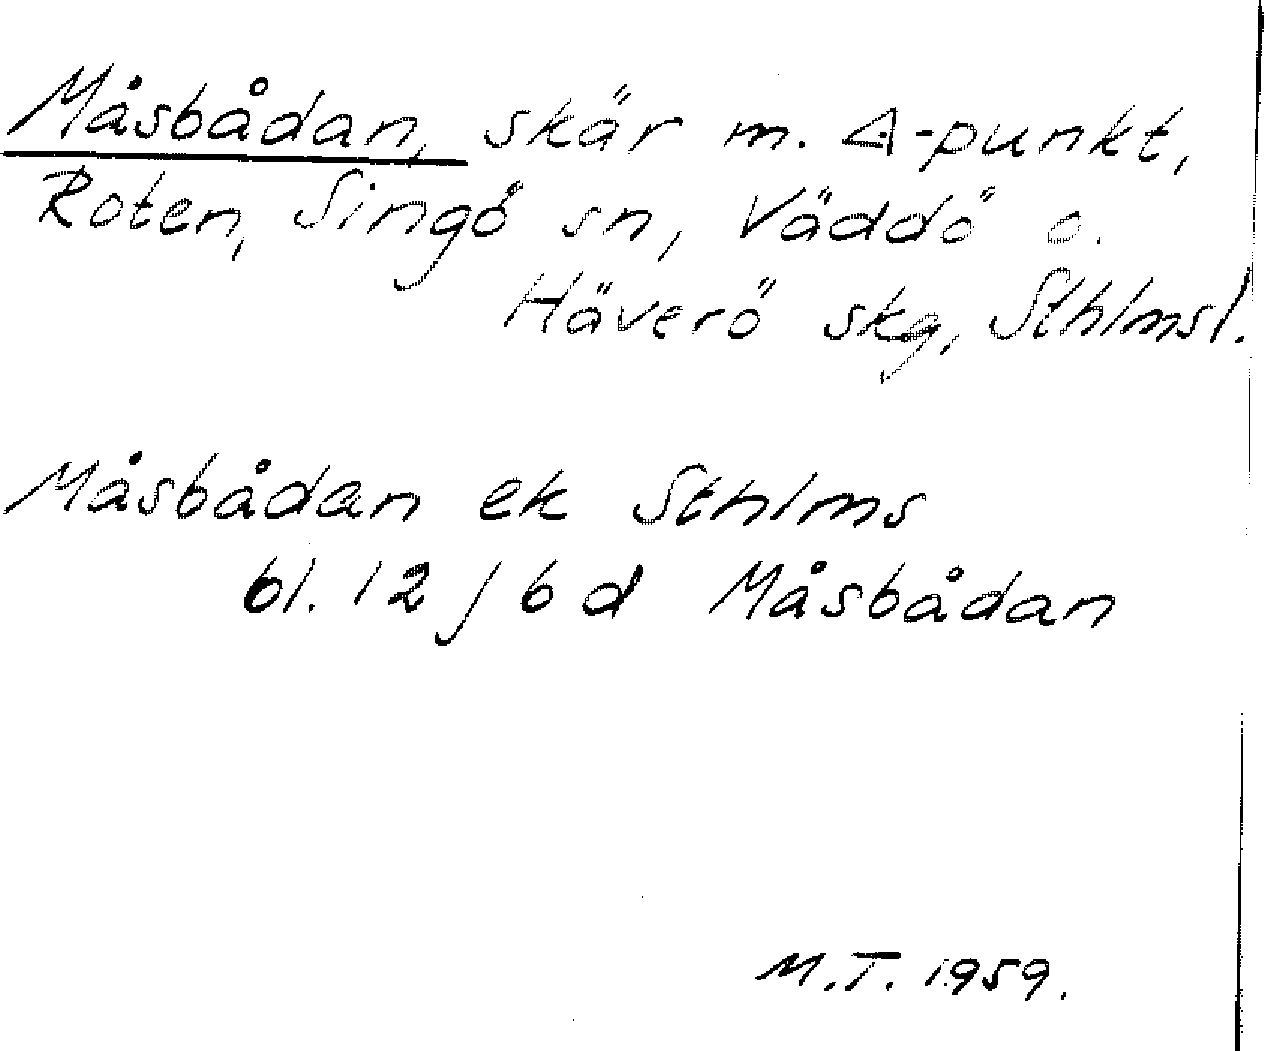 Måsbådan, skär m. △-punkt,
Roten, Singö sn, Väddö o.
Häverö skg, Sthlmsl.
Måsbådan ek Sthlms
bl. 12 j 6 d Måsbådan
M.T. 1959.